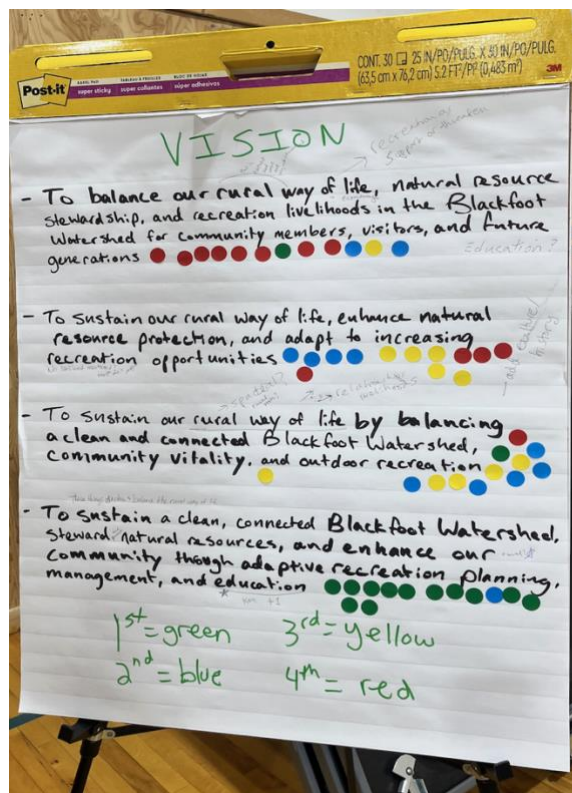 Post-it
EASEL PAD
super sticky
TABLEAU À FEUILLES
super collantes
BLOC DE HOJAS
súper adhesivas
CONT. 30 25 IN/PO/PULG. X 30 IN/PO/PULG.
(63,5 cm x 76,2 cm) 5.2 FT²/PI² (0,483 m²)
3M
VISION
recreational
- To balance our rural way of life, natural resource
stewardship, and recreation livelihoods in the Blackfoot
Watershed for community members, visitors, and future
generations
Education?
- To sustain our rural way of life, enhance natural
resource protection, and adapt to increasing
recreation opportunities
add cultural
history
- To sustain our rural way of life by balancing
a clean and connected Blackfoot Watershed,
community vitality, and outdoor recreation
- To sustain a clean, connected Blackfoot Watershed,
steward natural resources, and enhance our
community though adaptive recreation planning,
management, and education
+1
1st = green
3rd = yellow
2nd = blue
4th = red